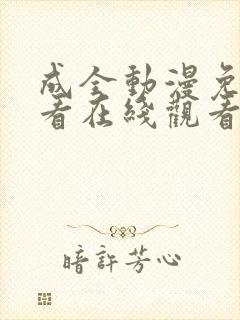 成全動漫免
看在綫觀看
暗許芳心